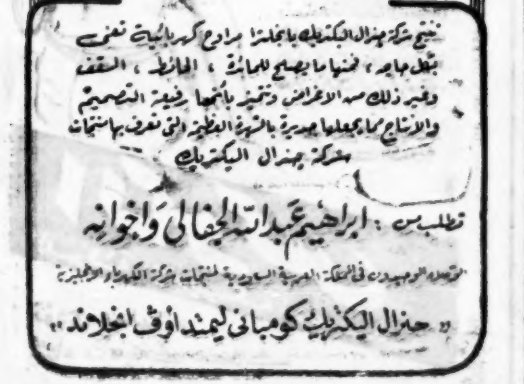 تنتج شركة جنرال اليكتريك بانجلترا مراوح كهربائية تفى
بكل حاجه ، فمنها ما يصلح للمائدة ، الحائط ، السقف
وغير ذلك من الاغراض وتتميز بأنها رفيعة التصميم
والانتاج مما يجعلها جديرة بالشهرة العظيمة التى تعرف بها منتجات
شركة جنرال اليكتريك
تطلب من : ابراهيم عبد الله الجفالي واخوانه
الوكلاء الوحيدون فى المملكة العربية السعودية لمنتجات شركة الكهرباء الانجليزية
" جنرال اليكتريك كومبانى ليمتد اوف انجلاند "